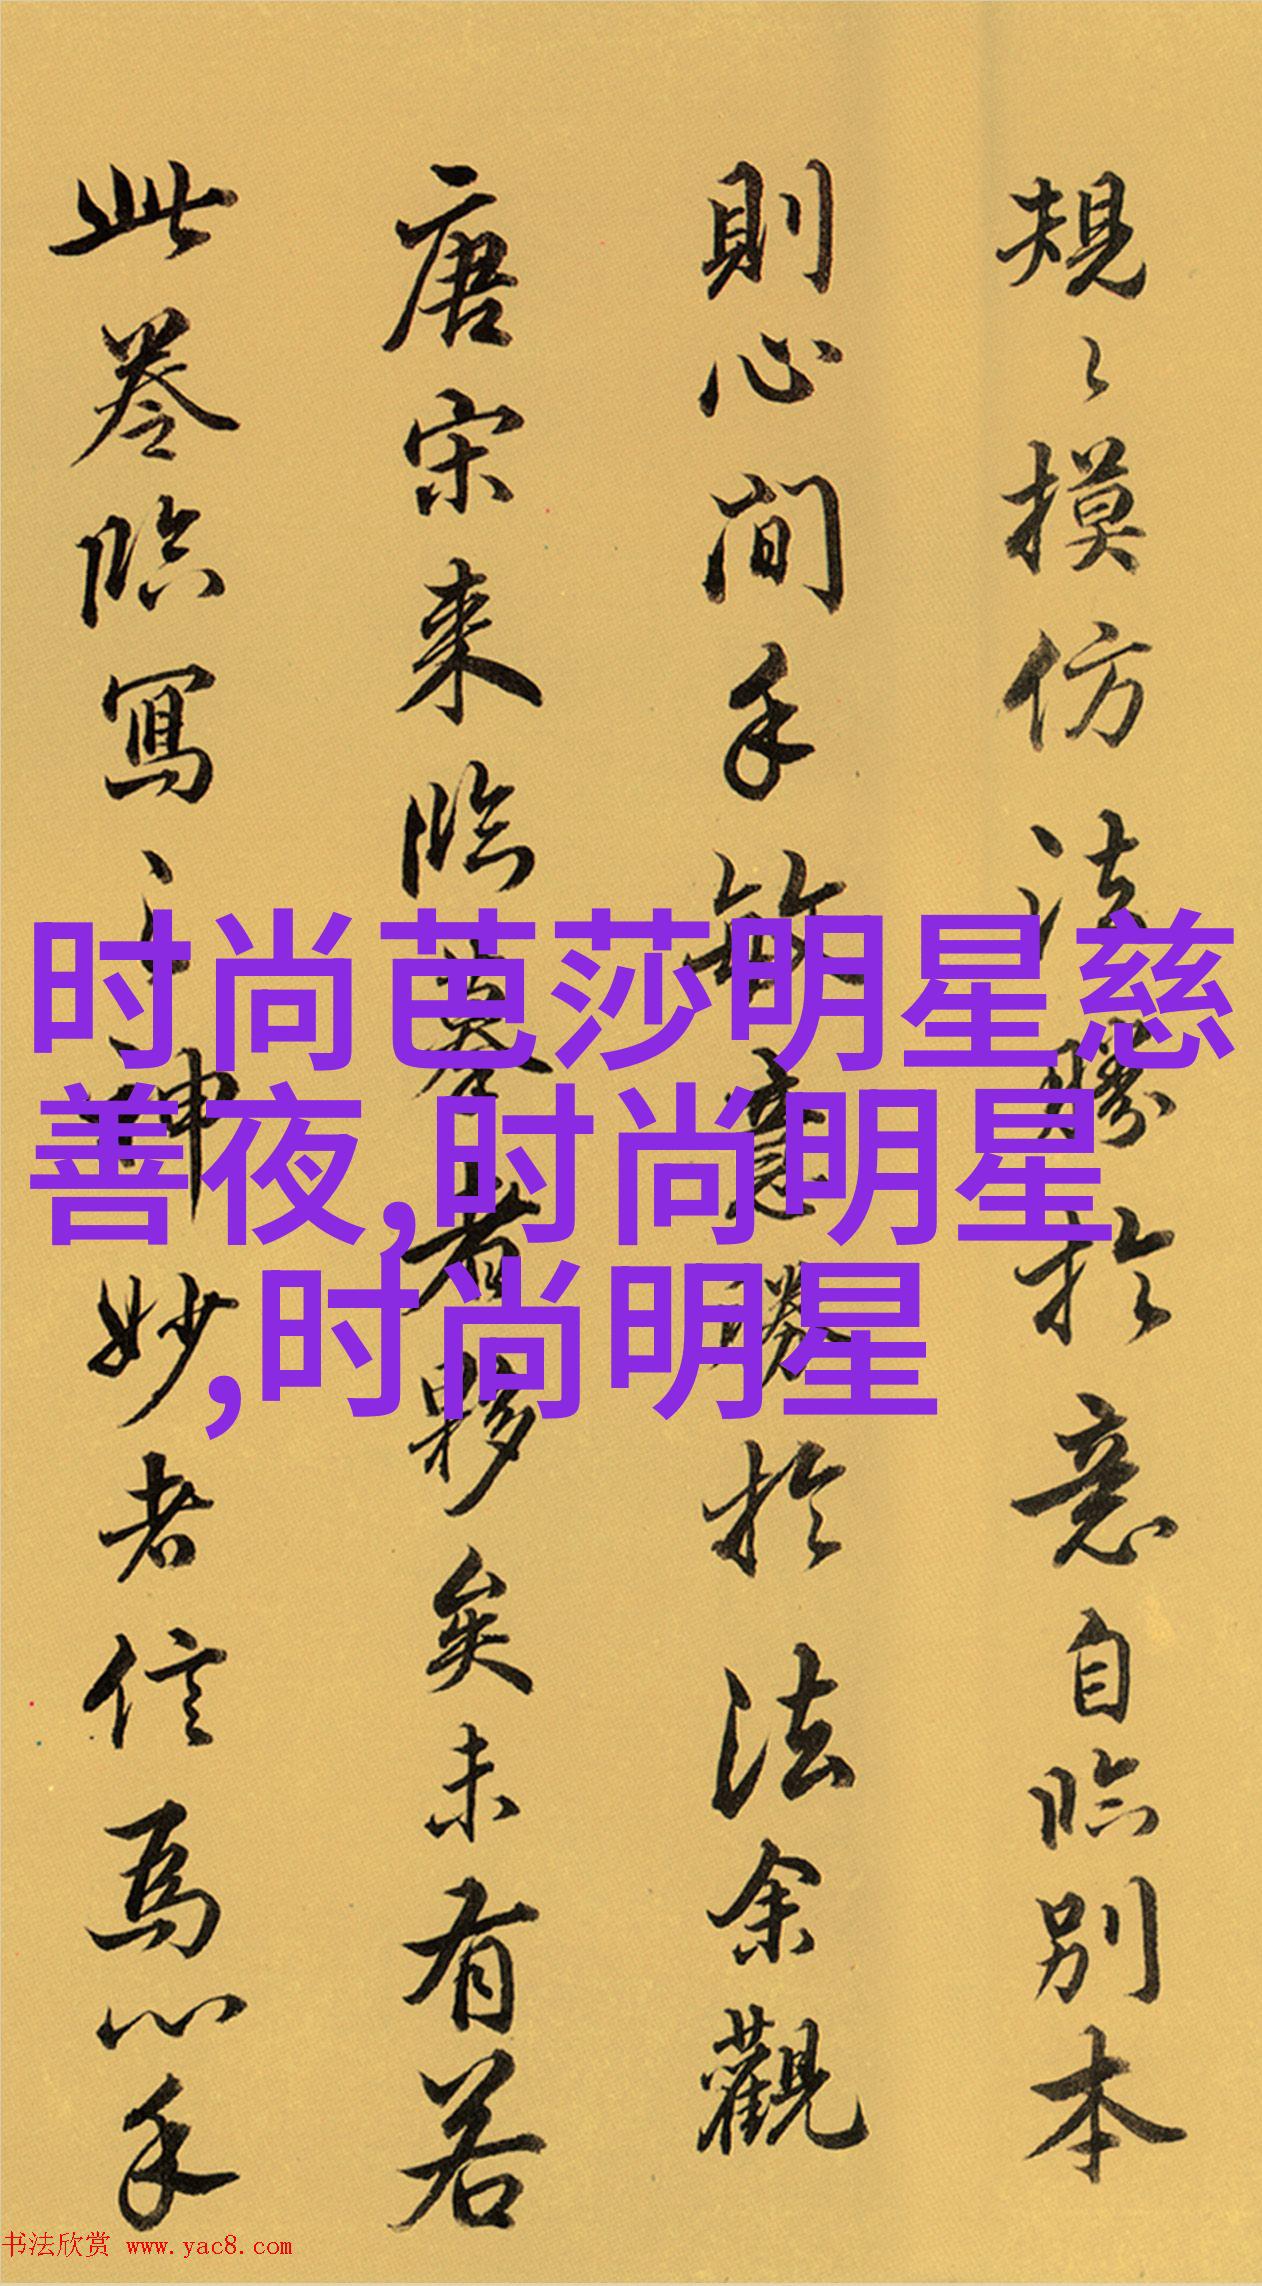 規〻摸仿法勝於意自臨別本
則心間手敏意勝於法余觀
唐宋來臨摹者夥矣未有若
此卷臨寫之神妙者信為心手
时尚芭莎明星慈
善夜,时尚明星
,时尚明星
书法欣赏 www.yac8.com